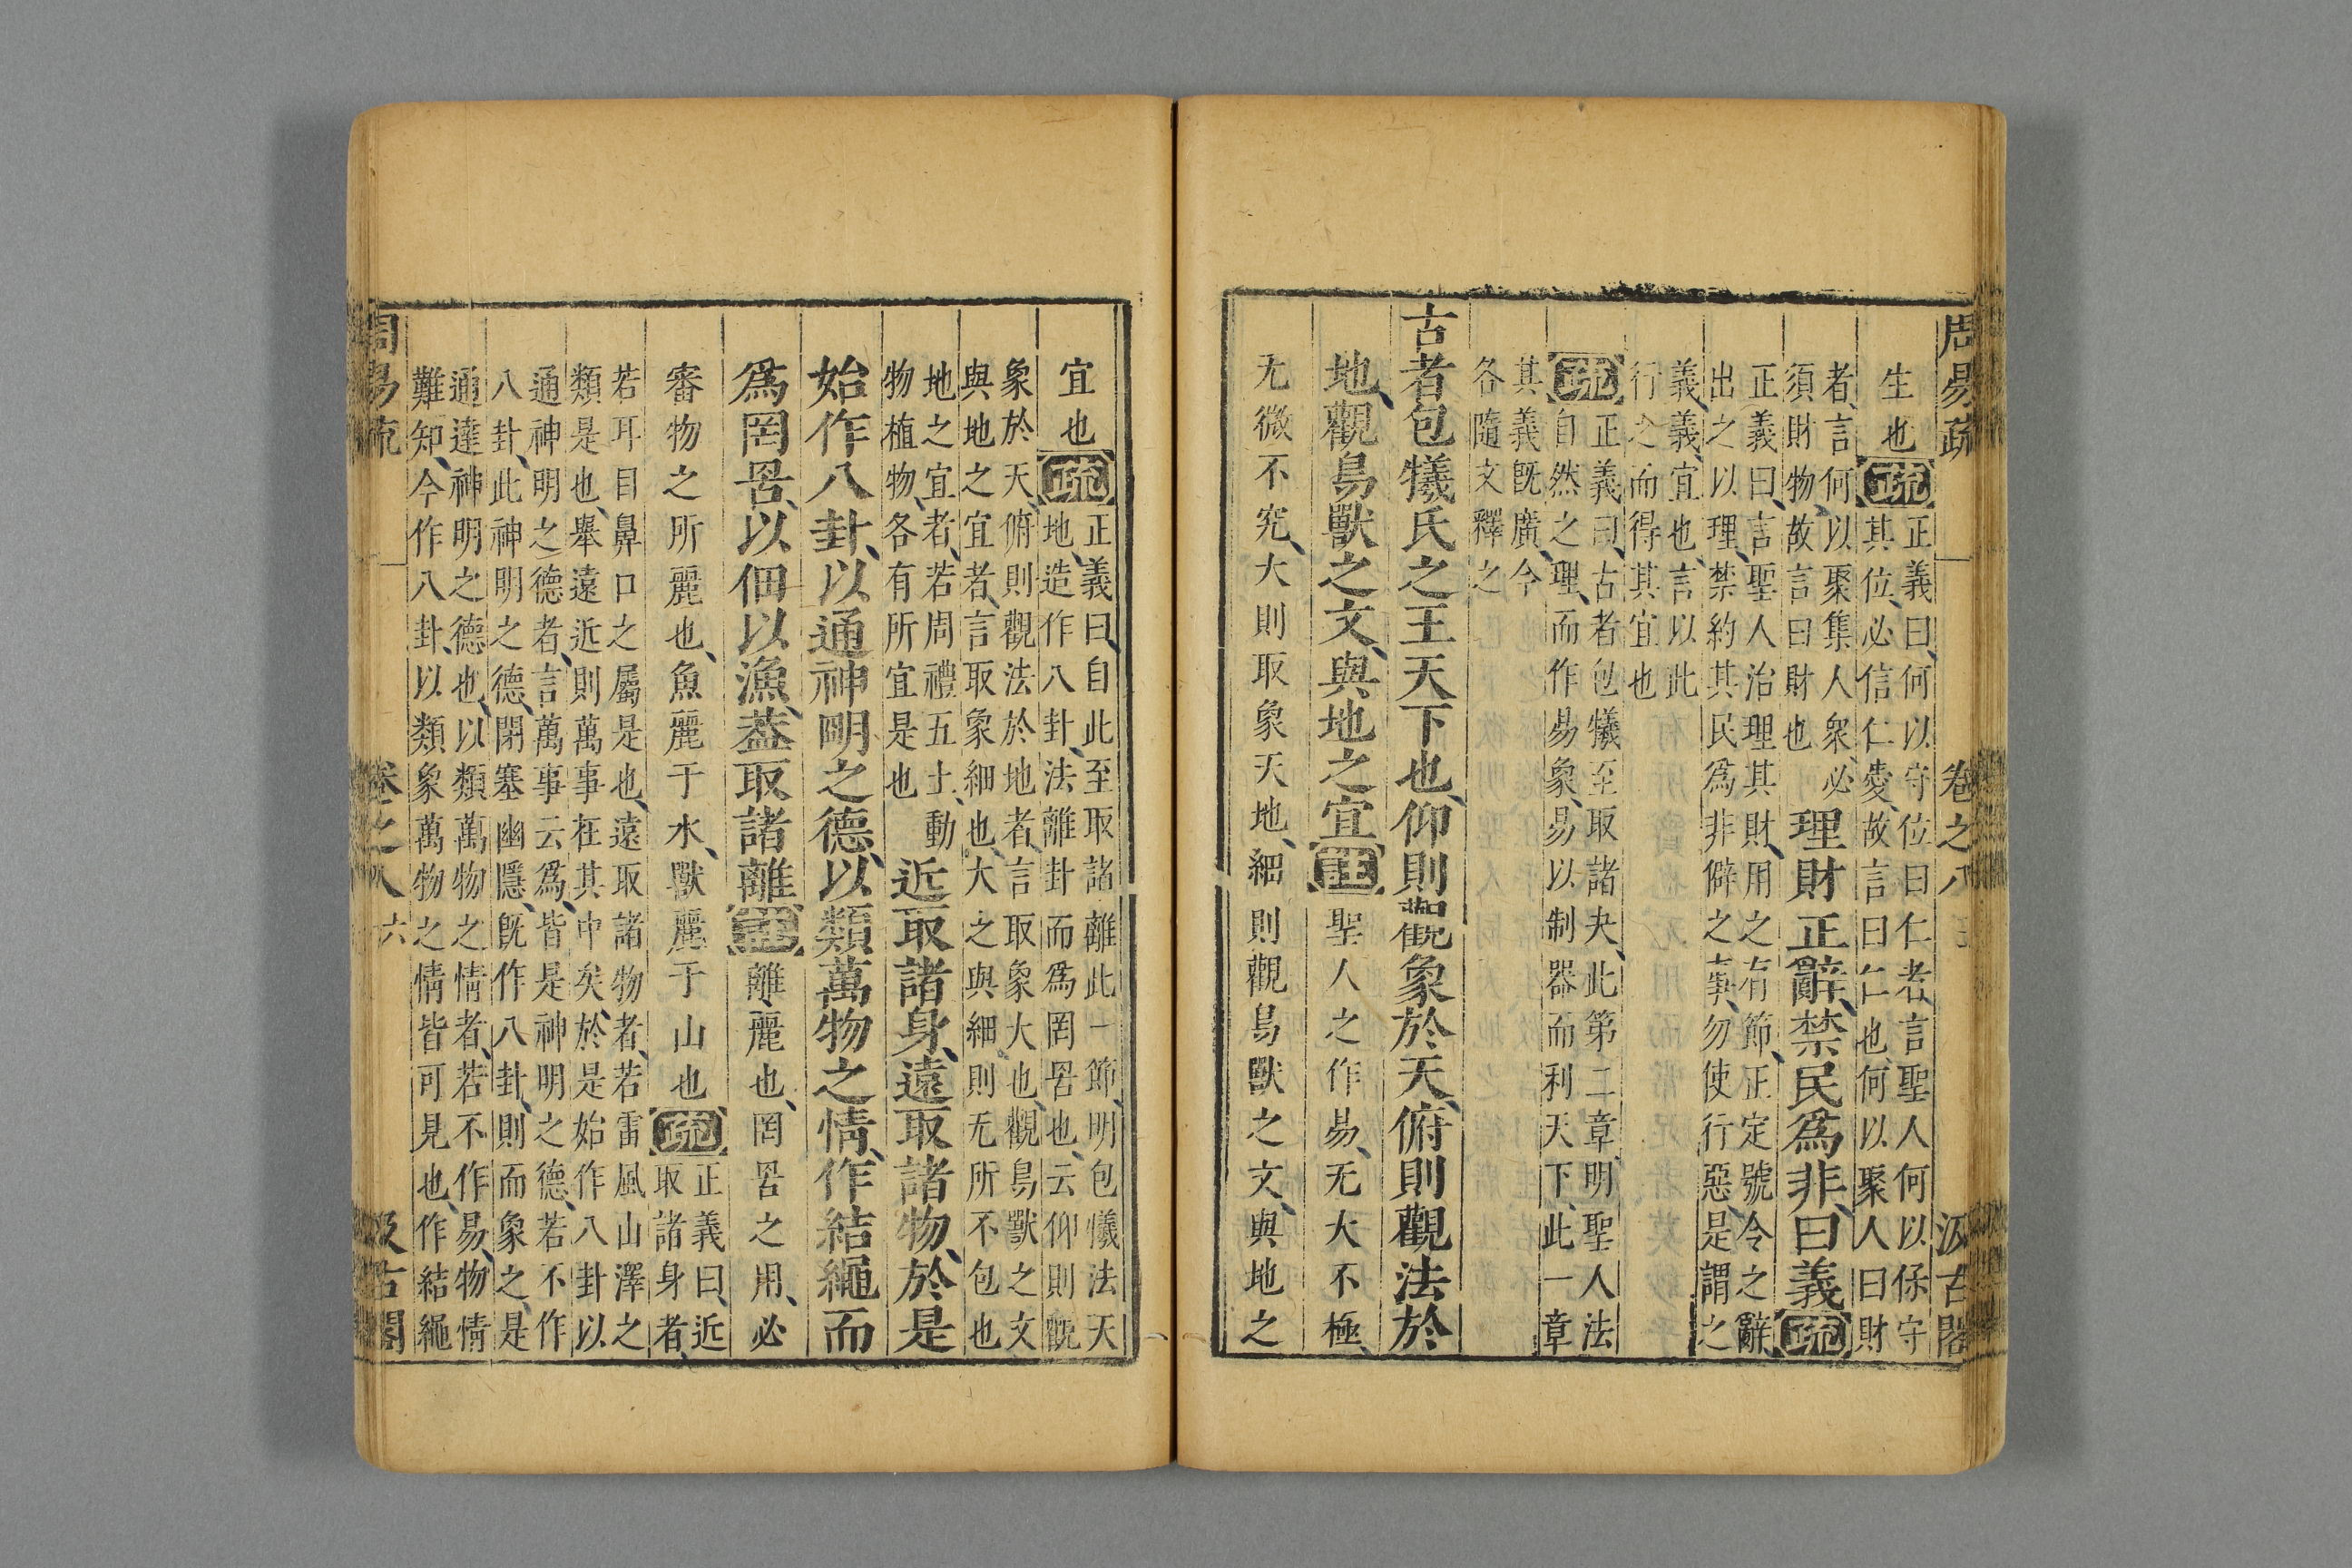 周易疏 卷之八 五 汲古閣
生也疏正義曰何以守位曰仁者言聖人何以保守
其位必信仁愛故言曰仁也何以聚人曰財
者言何以聚集人衆必
須財物故言曰財也
理財正辭禁民爲非曰義疏
正義曰言聖人治理其財用之有節正定號令之辭
出之以理禁約其民爲非僻之事勿使行惡是謂之
義義宜也言以此
行之而得其宜也
疏正義曰古者包犧至取諸夬此第二章明聖人法
自然之理而作易象易以制器而利天下此一章
其義旣廣今
各隨文釋之
古者包犧氏之王天下也仰則觀象於天俯則觀法於
地觀鳥獸之文與地之宜註聖人之作易无大不極
无微不究大則取象天地細則觀鳥獸之文與地之
宜也疏正義曰自此至取諸離此一節明包犧法天
地造作八卦法離卦而爲罔罟也云仰則觀
象於天俯則觀法於地者言取象大也觀鳥獸之文
與地之宜者言取象細也大之與細則无所不包也
地之宜者若周禮五土動
物植物各有所宜是也
近取諸身遠取諸物於是
始作八卦以通神明之德以類萬物之情作結繩而
爲罔罟以佃以漁蓋取諸離註離麗也罔罟之用必
審物之所麗也魚麗于水獸麗于山也疏正義曰近
取諸身者
若耳目鼻口之屬是也遠取諸物者若雷風山澤之
類是也舉遠近則萬事在其中矣於是始作八卦以
通神明之德者言萬事云爲皆是神明之德若不作
八卦此神明之德閉塞幽隱旣作八卦則而象之是
通達神明之德也以類萬物之情者若不作易物情
難知今作八卦以類象萬物之情皆可見也作結繩
周易疏 卷之八 六 汲古閣